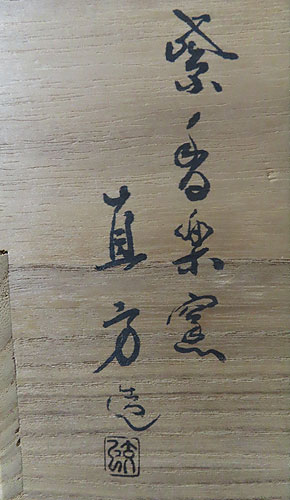 紫香楽窯
直方造